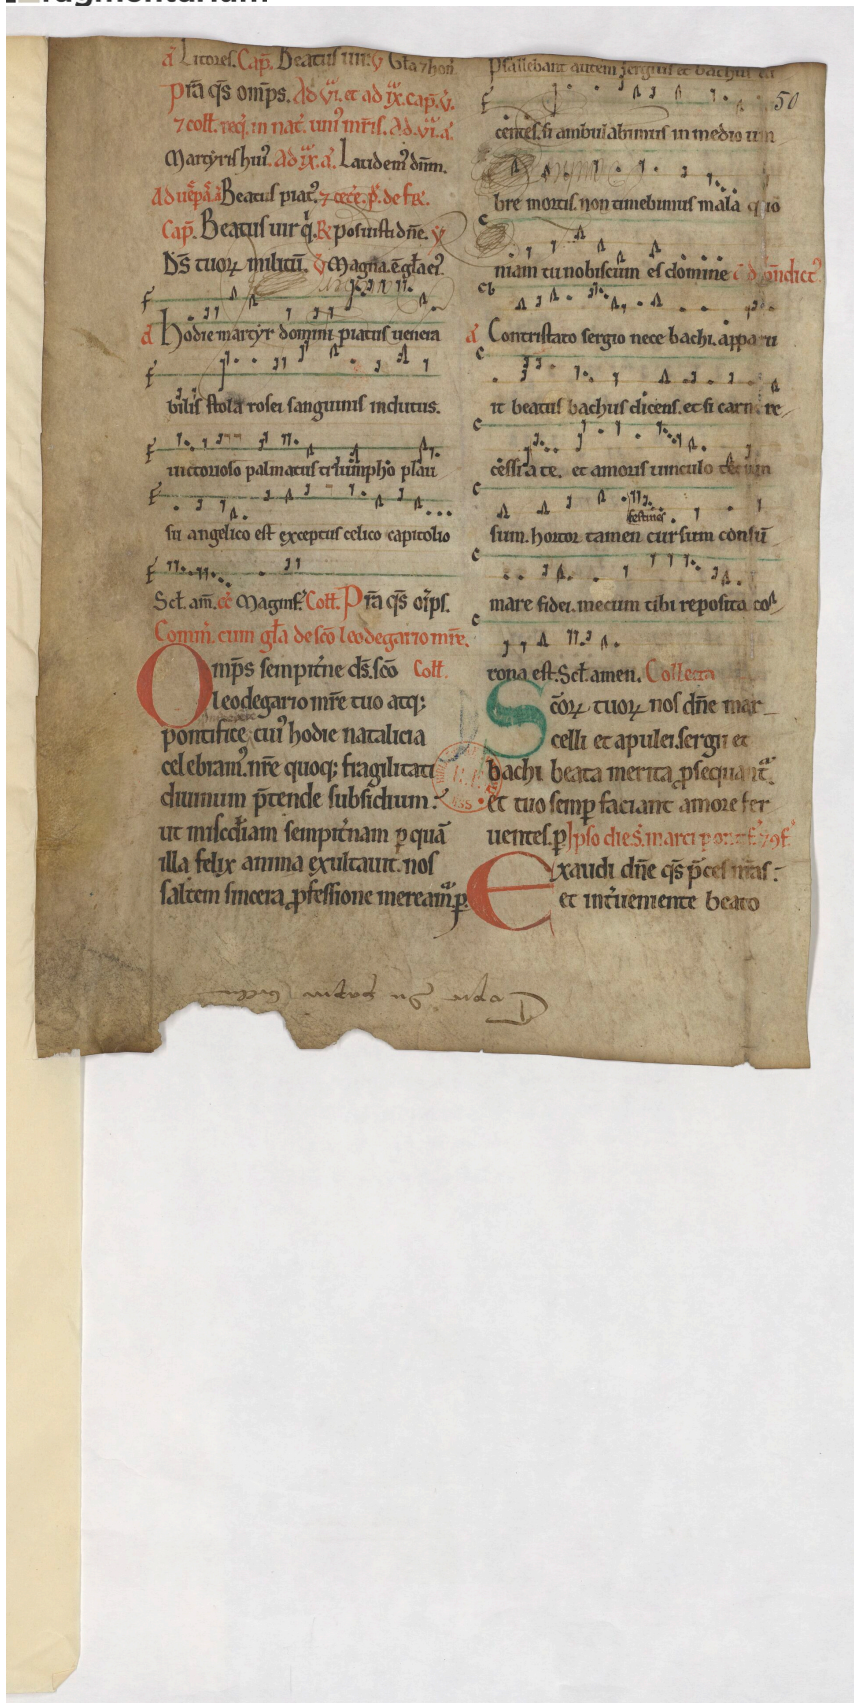 a Litores. Cap̄. Beatus uir. ꝟ Gl̄a ⁊ hon̄
Pr̄a q̄s om̄ps. Ad ui. et ad ix. cap̄. ꝟ.
⁊ coll̄. req̄. in nat̄. uni᾿ mr̄is. Ad. vi. a᾿.
Martyris hui᾿. Ad ix. a᾿. Laudem᾿ dn̄m.
Beatus piat᾿. ⁊ cet̄e. p̄. de
Cap̄. Beatus uir q᾿. ℟ posuisti dn̄e. ꝟ
D̄s tuoꝝ militū. ꝟ Magna. ē gl̄a ei᾿.
a᾿ Hodie martyr domini piatus uenera
bilis stola rosei sanguinis indutus.
uictorioso palmatus triumpho plau
su angelico est exceptus celico capitolio
Scl̄. am̄. Magnif᾿. Coll̄. Pr̄a q̄s om̄ps.
Comm̄. cum gl̄a de sc̄o leodegario mr̄e.
Omp̄s sempit̄ne d̄s. sc̄o Coll̄.
leodegario mr̄e tuo atq;
pontifice cui᾿ hodie natalicia
celebram᾿. nr̄e quoq; fragilitati
diuinum p̄tende subsidium:
ut misc̄diam sempit̄nam ꝑ quā
illa felix anima exultauit. nos
saltem sincera ꝓfessione mereamᷣ. ꝑ.
Psallebant autem sergius et bachus
50
centes. si ambulabimus in medio um
bre mortis. non timebimus mala quo
niam tu nobiscum es domine
a᾿ Contristato sergio nece bachi. apparu
it beatus bachus dicens. et si carne re
cessi a te. et amoris uinculo tecum
festines
sum. hortor tamen cursum consū
mare fidei. mecum tibi reposita co
rona est. Scl̄. amen. Collecta
Sc̄oꝝ tuoꝝ nos dn̄e mar
celli et apulei. sergii et
bachi beata merita ꝓsequantᷣ.
et tuo semꝑ faciant amore fer
uentes. ꝑ Ipso die. S. marci
Exaudi dn̄e q̄s p̄ces nr̄as:
et int̄ueniente beato